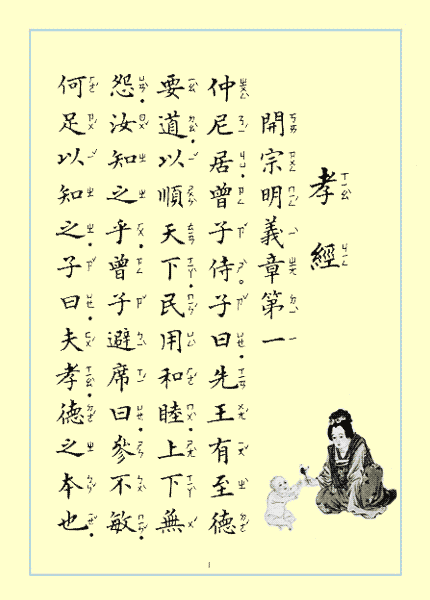 孝經
開宗明義章第一
仲尼居．曾子侍。子曰．先王有至德
要道．以順天下．民用和睦．上下無
怨．汝知之乎．曾子避席曰．參不敏．
何足以知之．子曰．夫孝．德之本也．
1